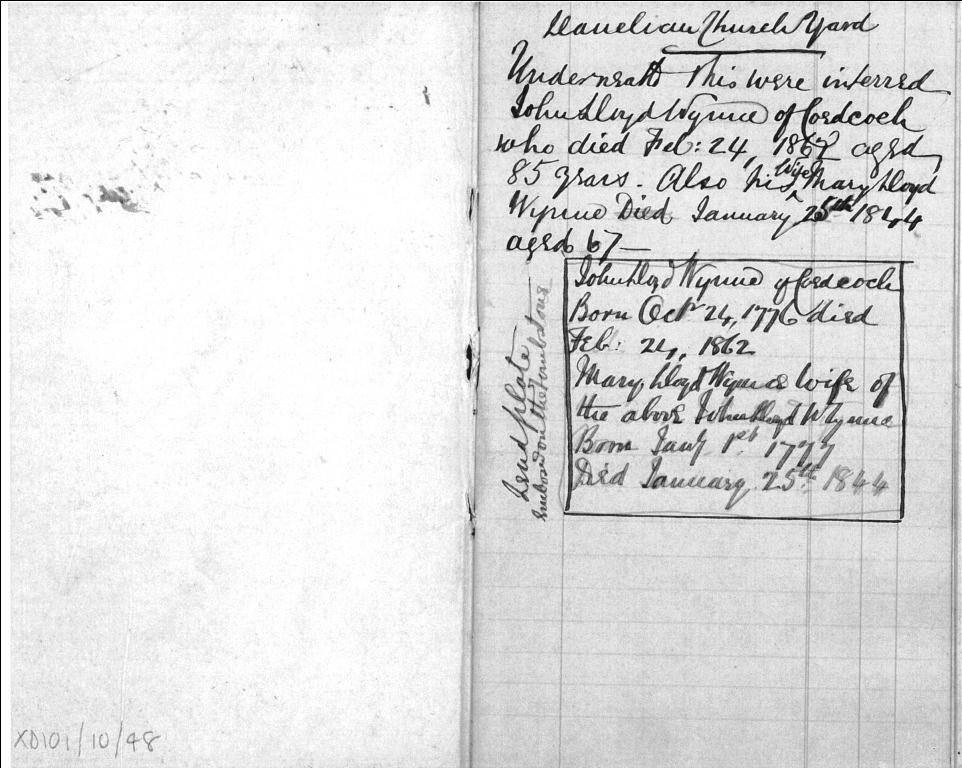 Llanelian Church Yard
Underneath This were interred
John Lloyd Wynne of Coedcoch
who died Feb: 24, 1862 aged
85 years. Also his Wife Mary Lloyd
Wynne Died January 25th 1844
aged 67—
John Lloyd Wynne of Coedcoch
Born Octr 24, 1776 died
Feb: 24, 1862
Mary Lloyd Wynne Wife of
the above John Lloyd Wynne
Born Jany 1st 1777
Died January 25th 1844
Lead plate
on the Tombstone
XD101/10/48